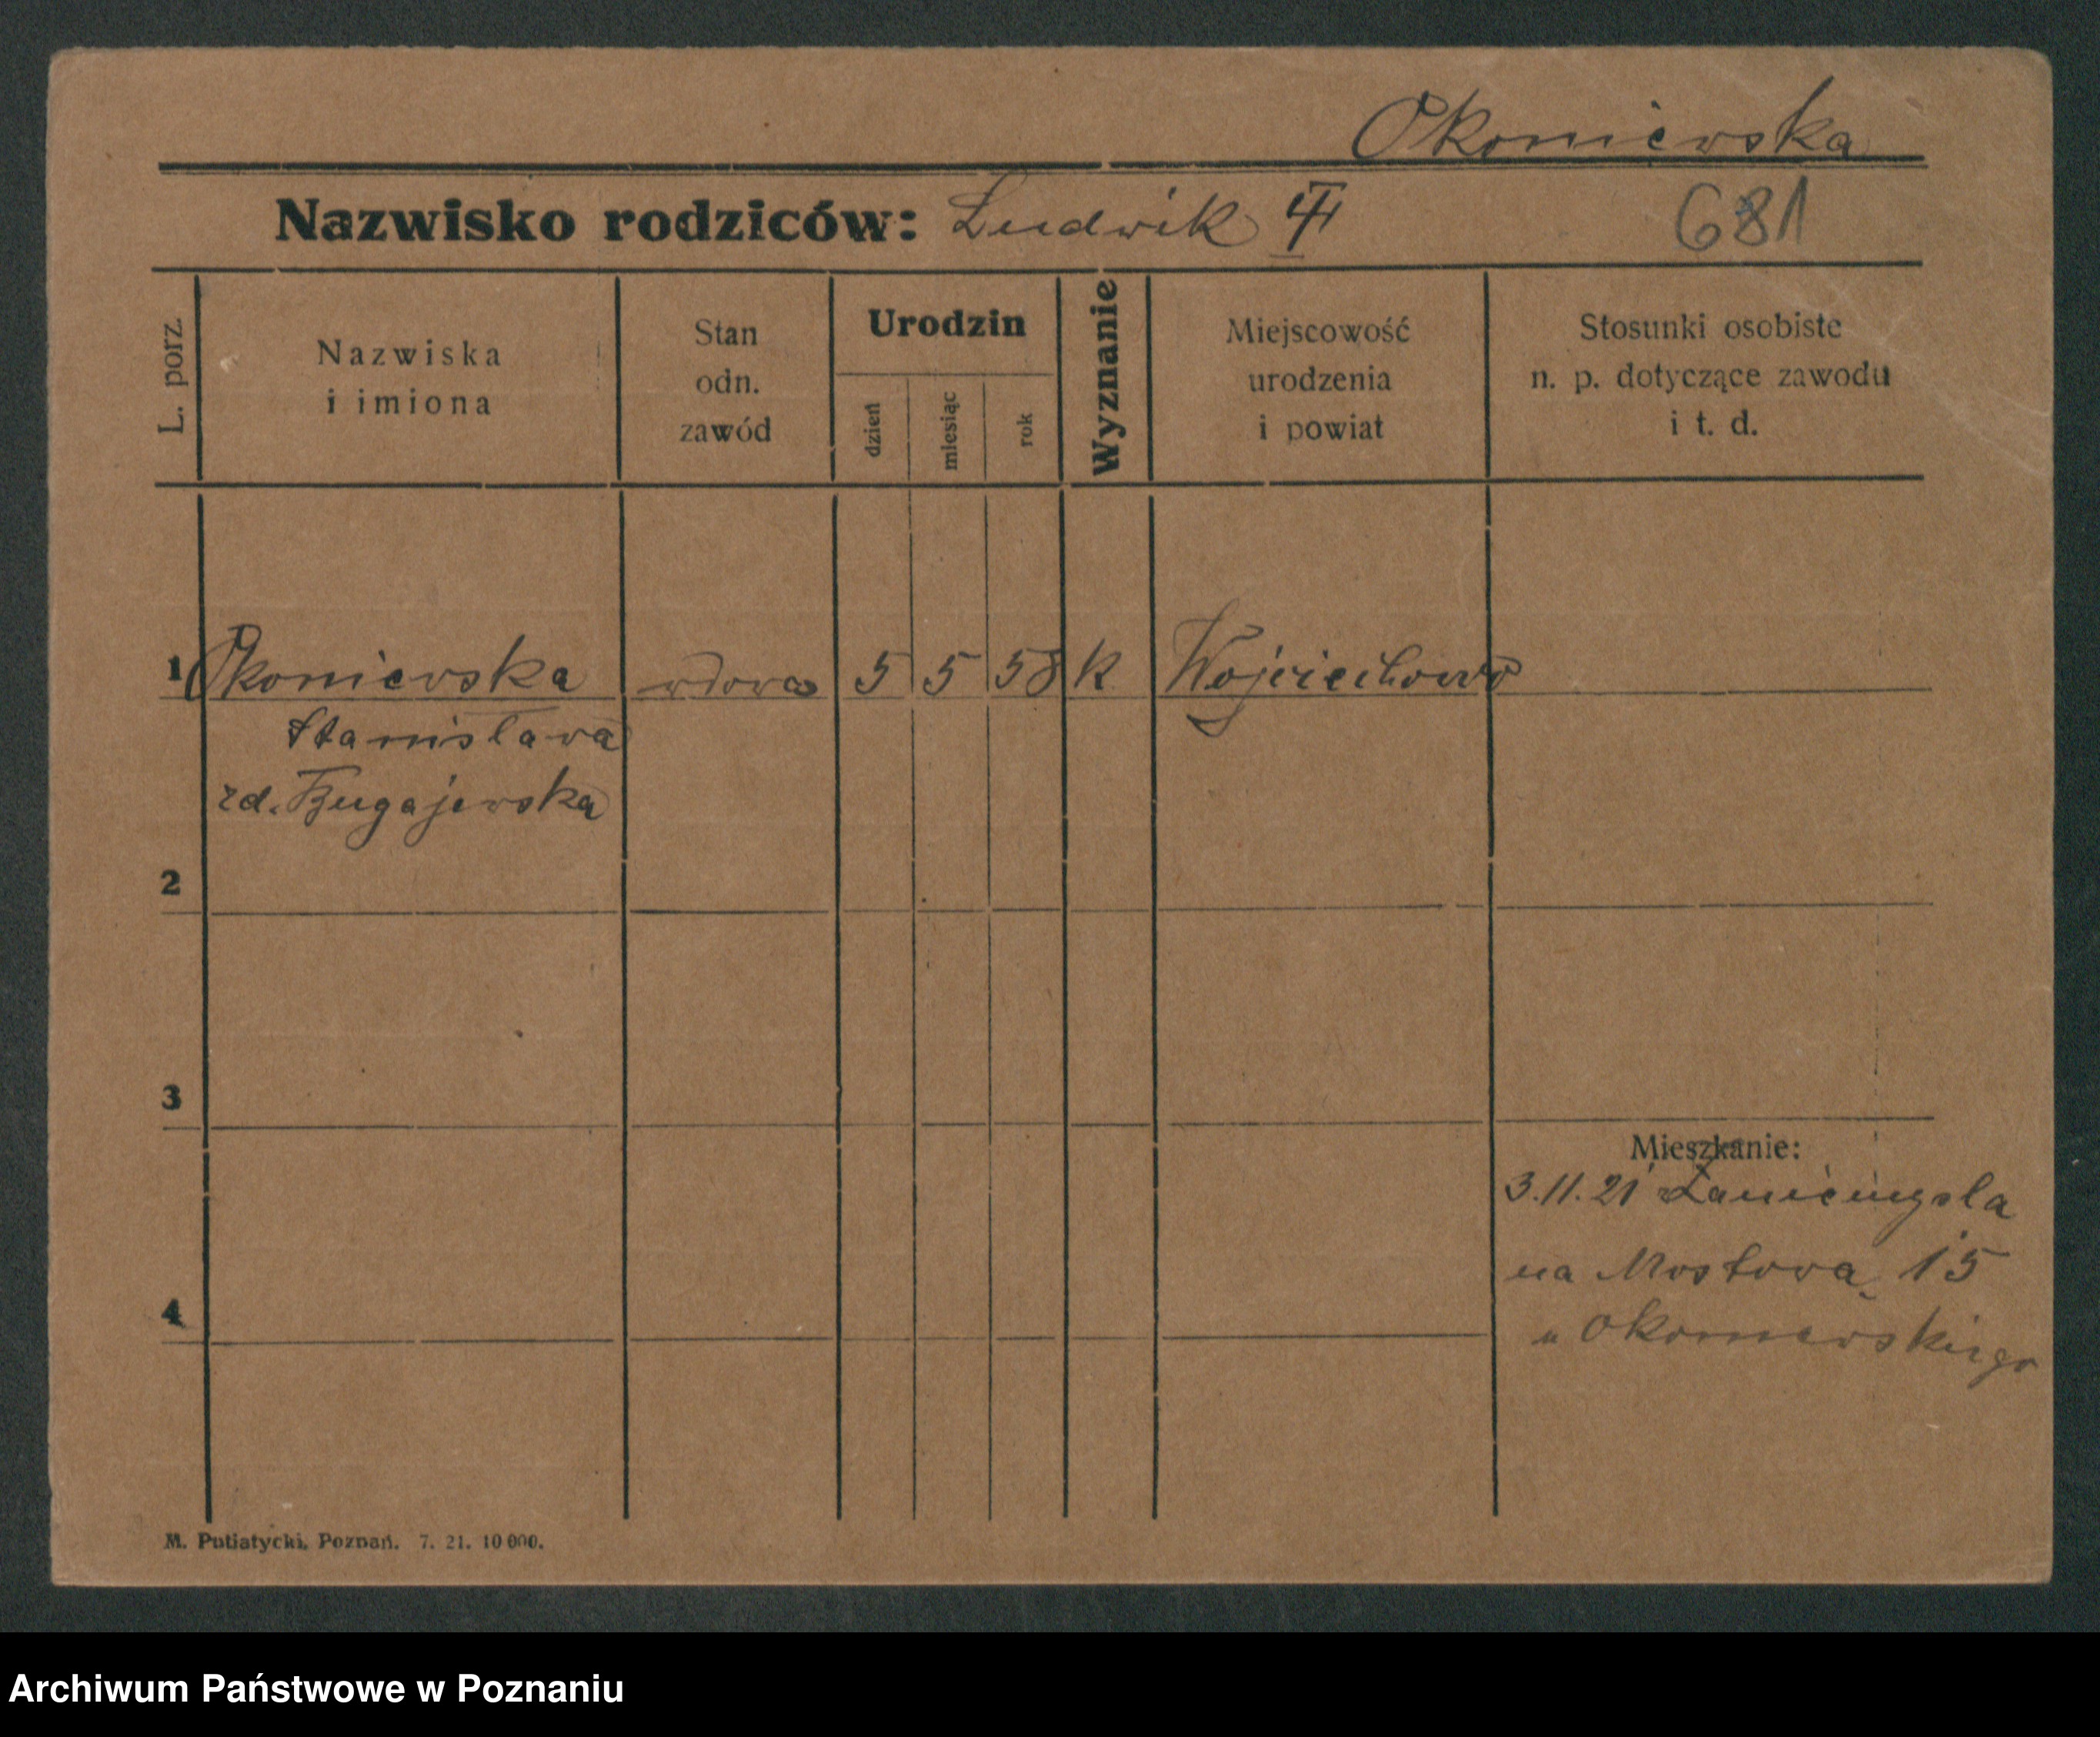 Okoniewska
Nazwisko rodziców: Ludwik
681
L. porz.
Nazwiska
i imiona
Stan
odn.
zawód
Urodzin
dzień
miesiąc
rok
Wyznanie
Miejscowość
urodzenia
i powiat
Stosunki osobiste
n. p. dotyczące zawodu
i t. d.
1 Okoniewska wdowa 5 5 58 k Wojciechowo
Stanisława
zd. Bugajewska
2
3
Mieszkanie:
3.11.21 z Zaniemyśla
na Mostową 15
4
u Okoniewskiego
M. Putiatycki, Poznań. 7. 21. 10 000.
Archiwum Państwowe w Poznaniu